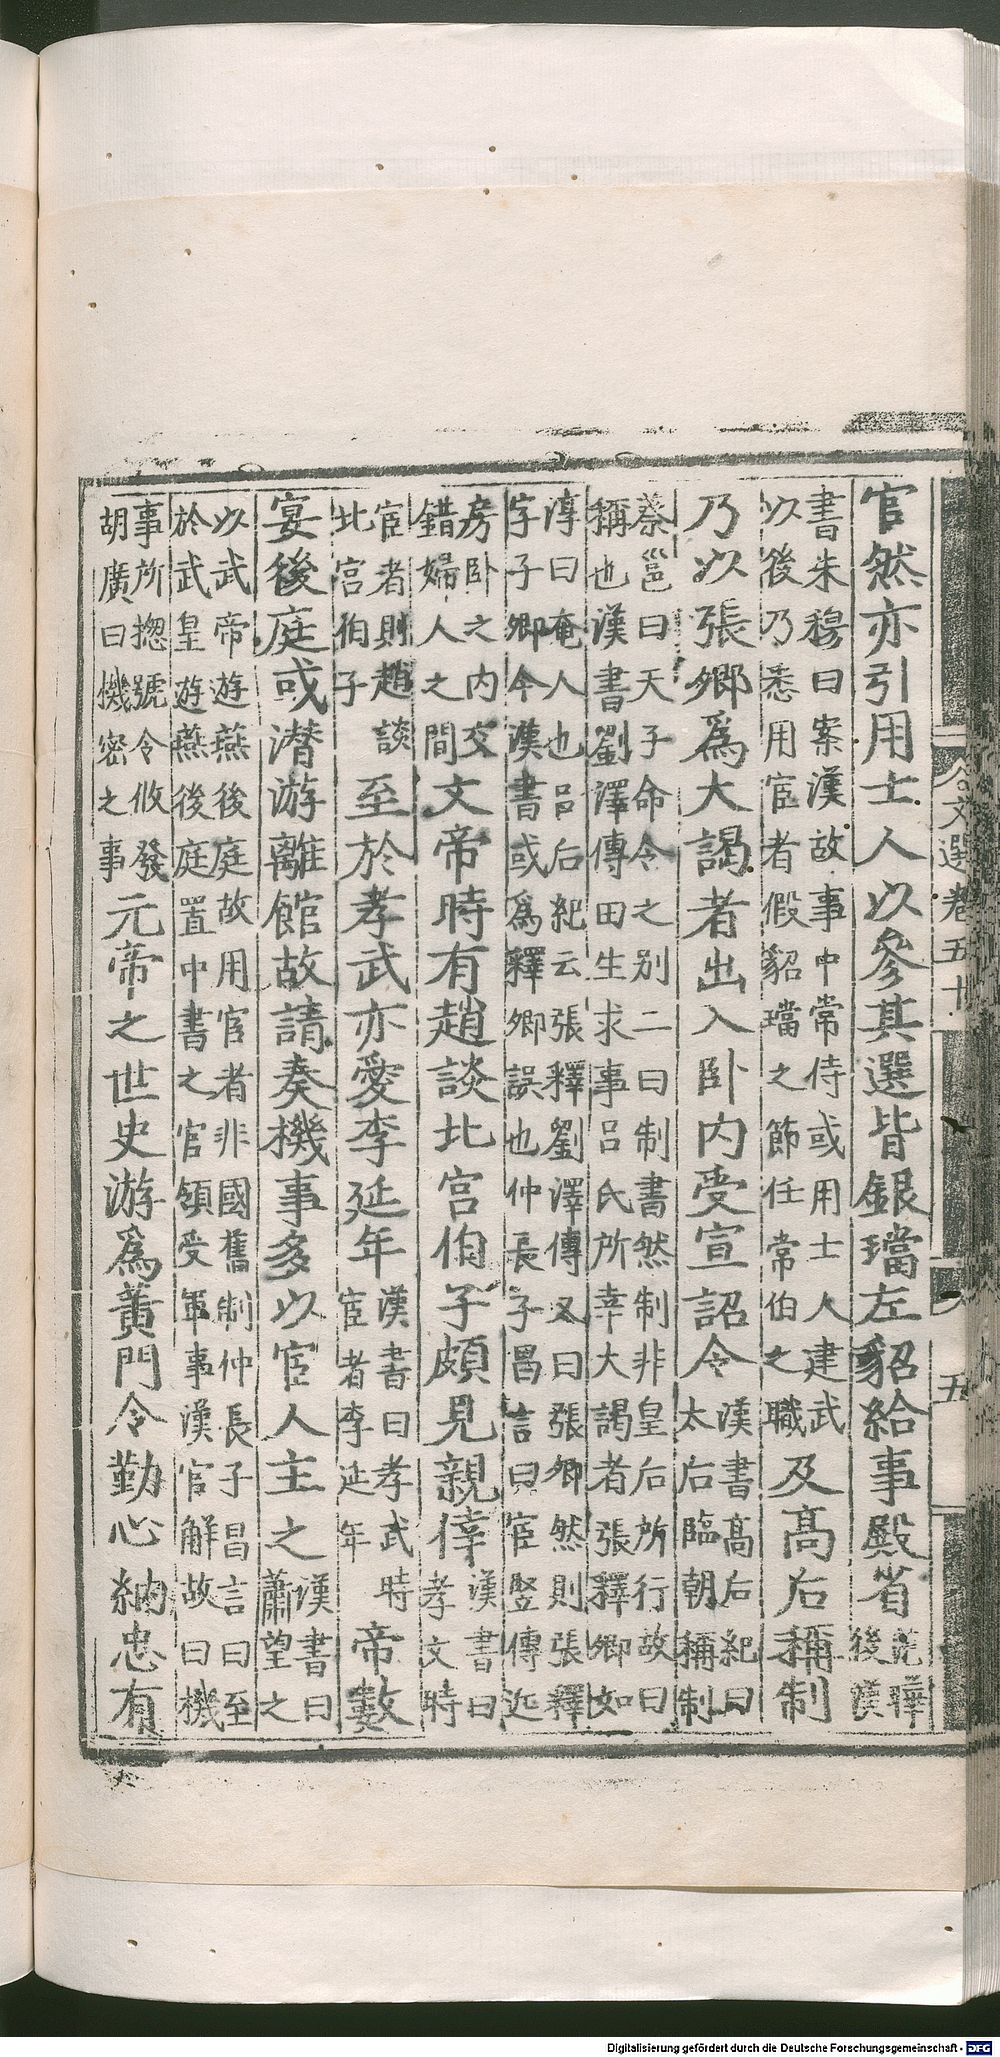 官然亦引用士人以參其選皆銀璫左貂給事殿省范曄後漢
書朱穆曰案漢故事中常侍或用士人建武以後乃悉用宦者假貂璫之節任常伯之職及高后稱制
乃以張卿爲大謁者出入卧内受宣詔令漢書高后紀曰太后臨朝稱制
蔡邕曰天子命令之别二曰制書然制非皇后所行故曰稱也漢書劉澤傳田生求事吕氏所幸大謁者張釋卿如
淳曰奄人也吕后紀云張釋劉澤傳又曰張卿然則張釋字子卿今漢書或爲釋卿誤也仲長子昌言曰宦竪傳近
房卧之内交錯婦人之間文帝時有趙談北宫伯子頗見親倖漢書曰孝文時
宦者則趙談北宫伯子至於孝武亦愛李延年漢書曰孝武時宦者李延年帝數
宴後庭或潜游離館故請奏機事多以宦人主之漢書曰蕭望之
以武帝遊燕後庭故用宦者非國舊制仲長子昌言曰至於武皇遊燕後庭置中書之官領受軍事漢官解故曰機
事所揔號令攸發胡廣曰機密之事元帝之世史游爲黄門令勤心納忠有
文選卷五十
五
Digitalisierung gefördert durch die Deutsche Forschungsgemeinschaft - DFG